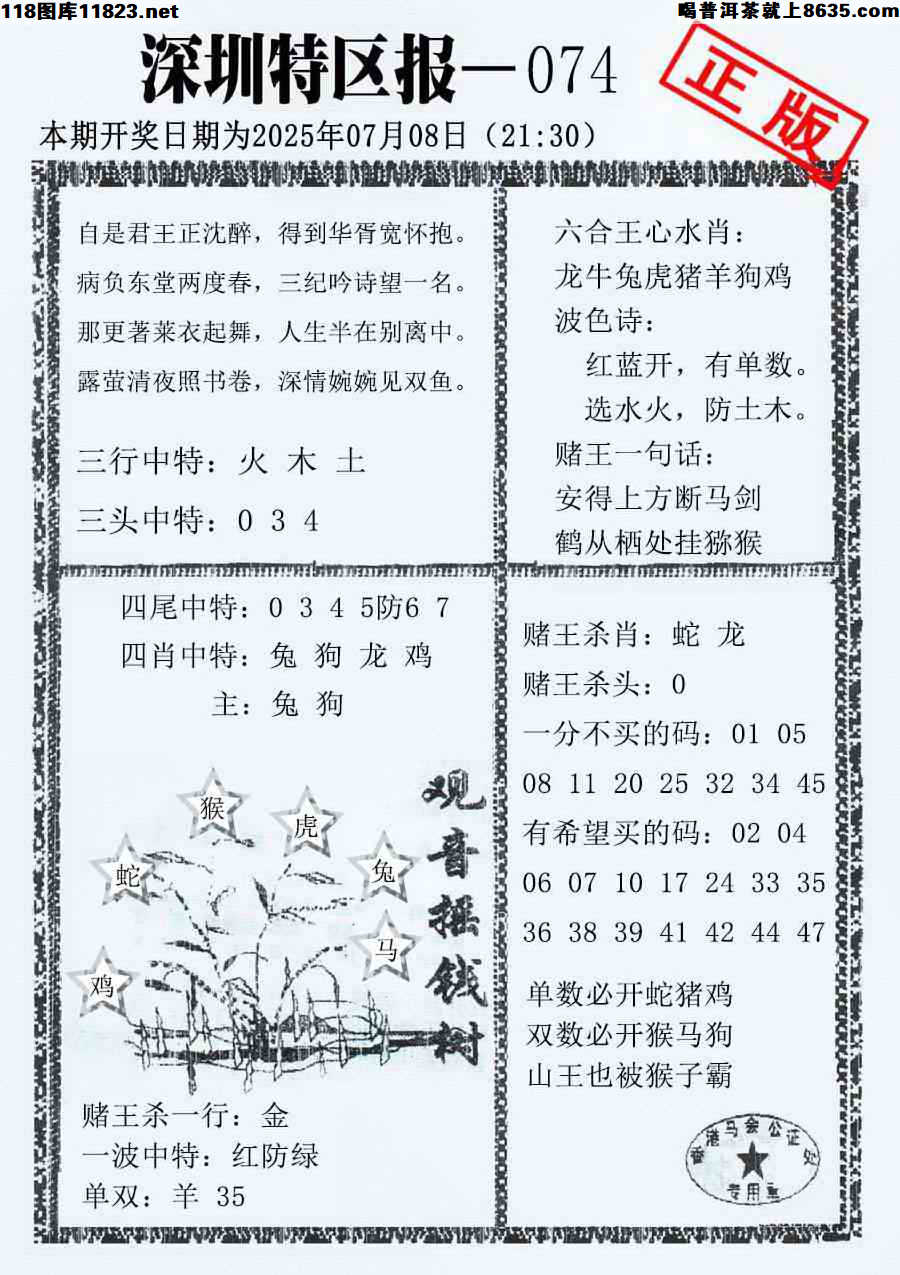 118图库11823.net
喝普洱茶就上8635.com
深圳特区报—074
正版
本期开奖日期为2025年07月08日（21:30）
自是君王正沈醉，得到华胥宽怀抱。
病负东堂两度春，三纪吟诗望一名。
那更著莱衣起舞，人生半在别离中。
露萤清夜照书卷，深情婉婉见双鱼。
三行中特：火 木 土
三头中特：0 3 4
六合王心水肖：
龙牛兔虎猪羊狗鸡
波色诗：
红蓝开，有单数。
选水火，防土木。
赌王一句话：
安得上方断马剑
鹤从栖处挂猕猴
四尾中特：0 3 4 5防6 7
四肖中特：兔 狗 龙 鸡
主：兔 狗
猴
虎
蛇
兔
马
鸡
观音摇钱树
赌王杀一行：金
一波中特：红防绿
单双：羊 35
赌王杀肖：蛇 龙
赌王杀头：0
一分不买的码：01 05
08 11 20 25 32 34 45
有希望买的码：02 04
06 07 10 17 24 33 35
36 38 39 41 42 44 47
单数必开蛇猪鸡
双数必开猴马狗
山王也被猴子霸
香港马会公证处
专用章